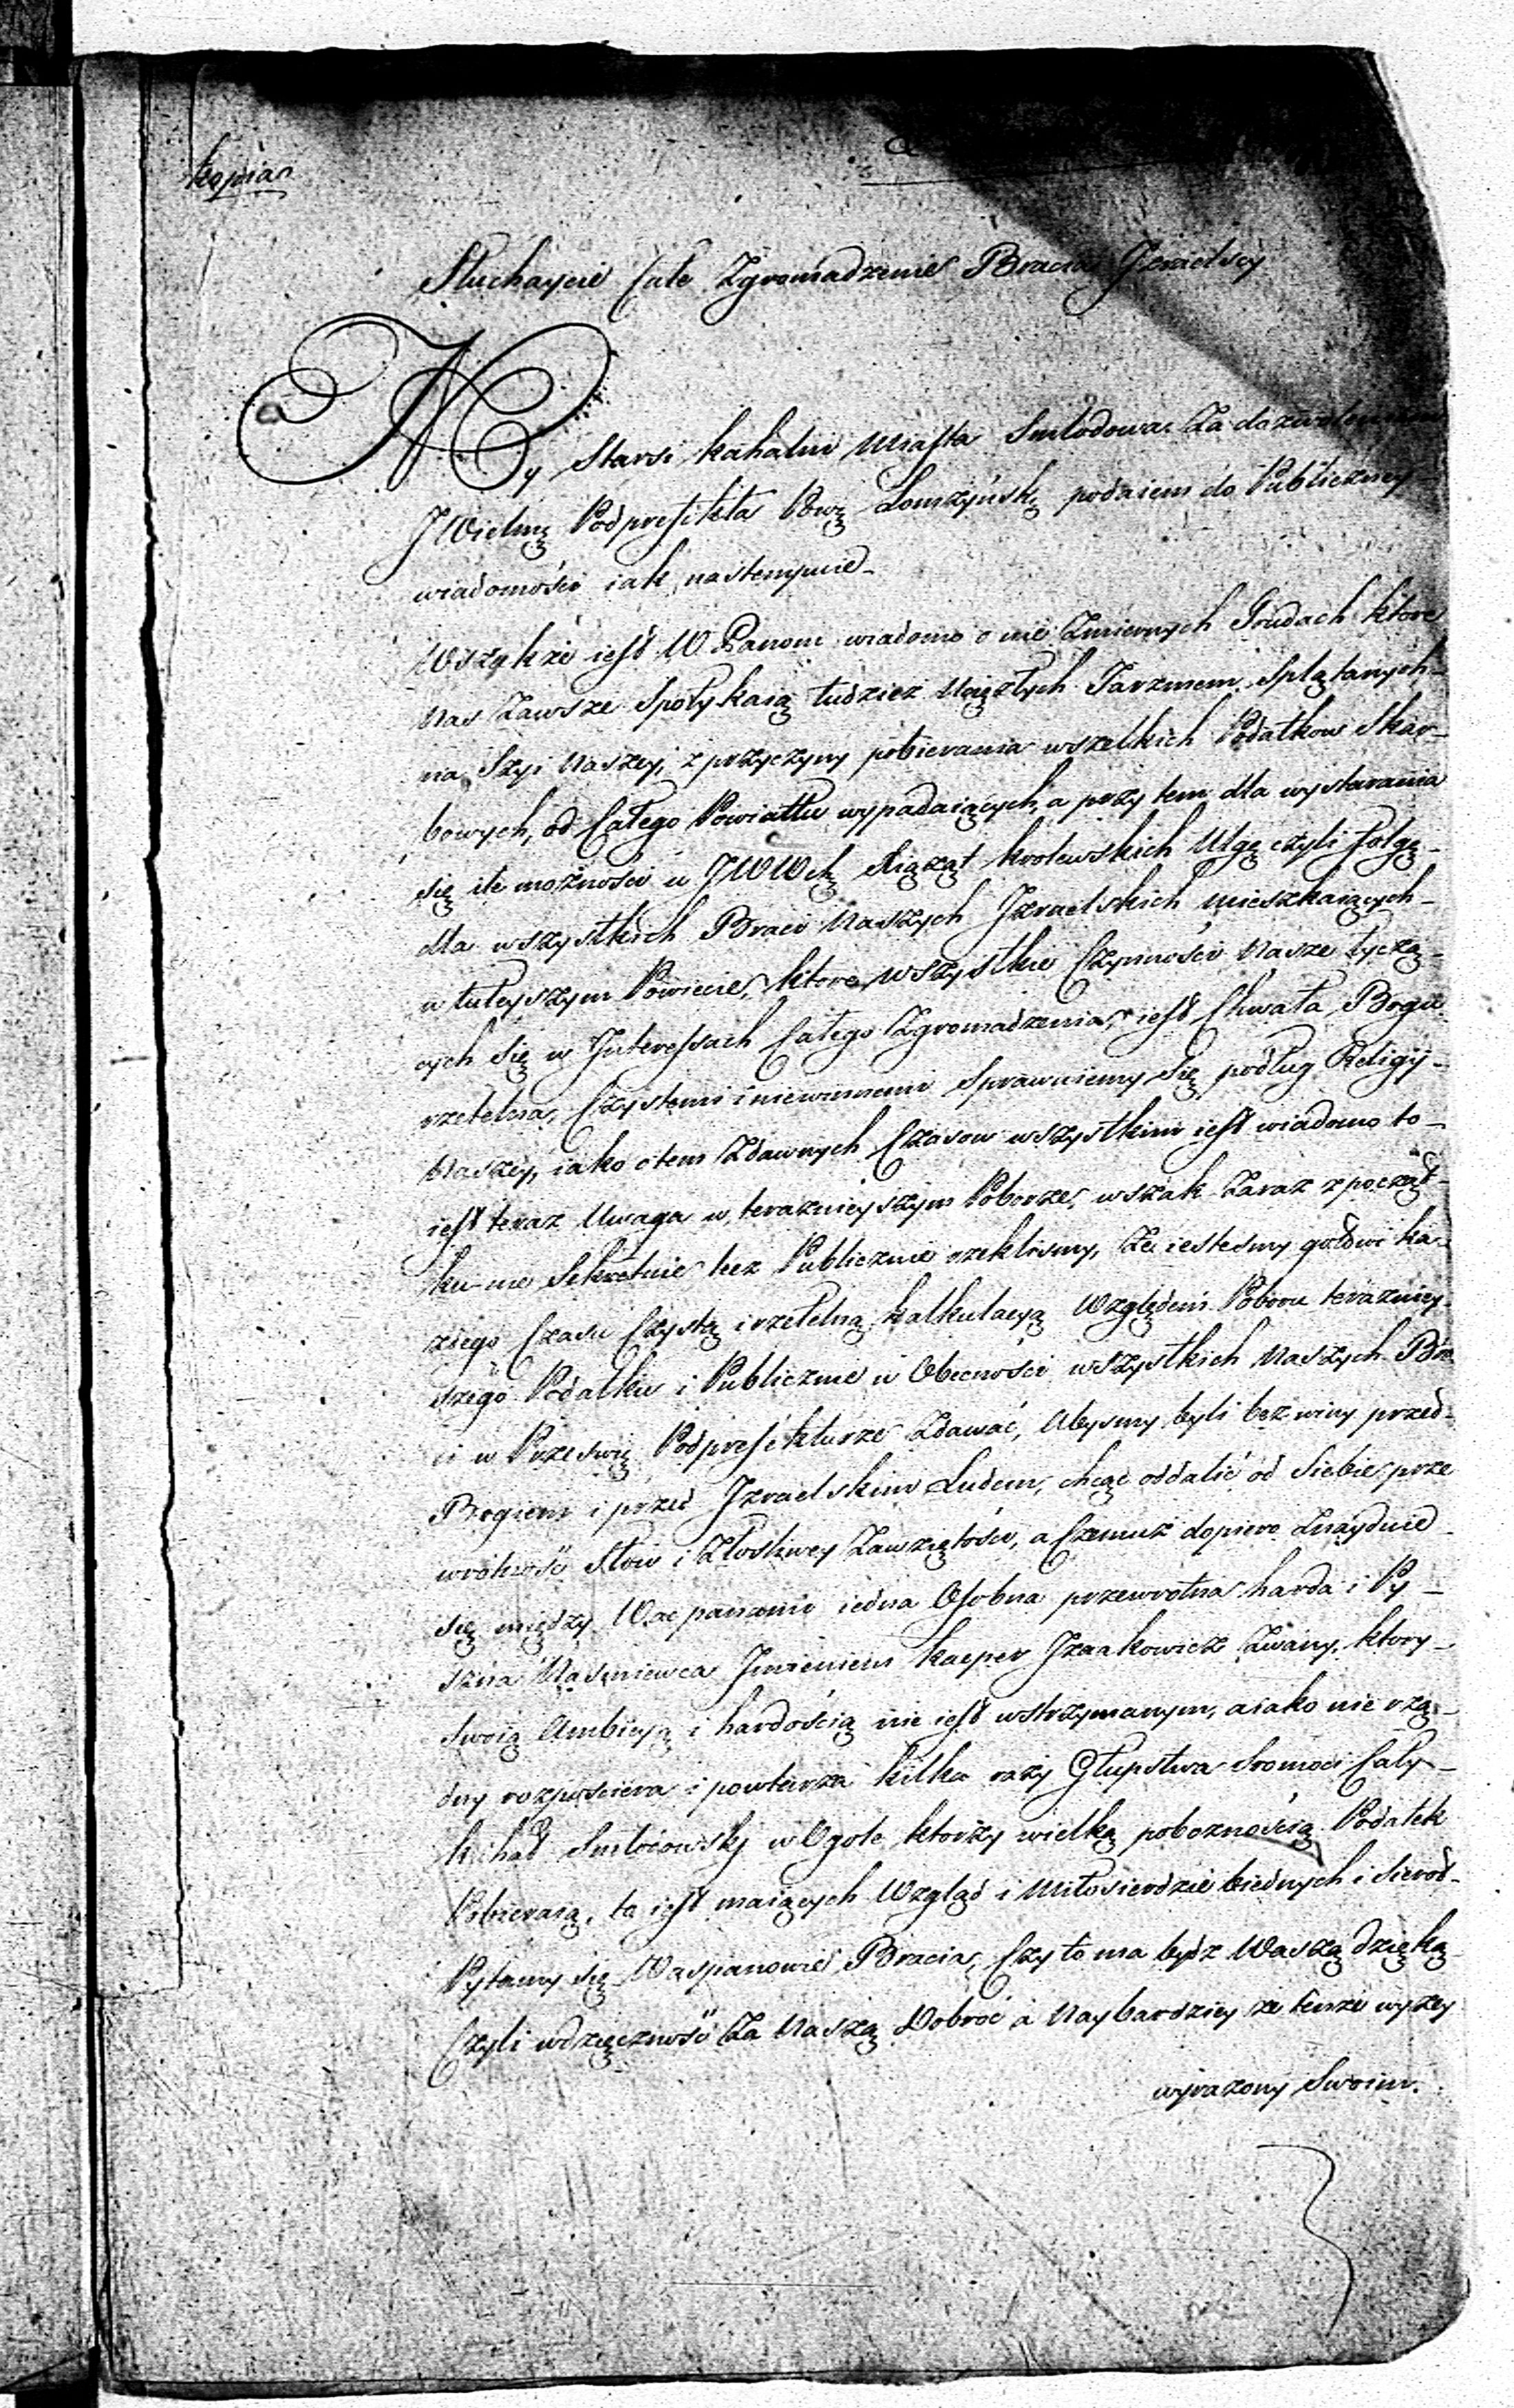 kopia
Słuchaycie Całe Zgromadzenie Bracia Izraelscy
My Starsi kahalni Miasta Sniadowa Za dozwoleniem
JWielmę Podprefekta Powę Lomżyńskę podaiem do Publiczney
wiadomości iak nastempuie
Wszakże iest W Panom wiadomo o nie Zmiernych Trudach ktore
Nas Zawsze Spotykaią tudziez Uciązłych Jarzmem Splątanych
na Szyi Naszey, z przyczyny pobierania wszelkich Podatkow Skar-
bowych, od Całego Powiatu wypadaiących, a przy tem dla wystarania
się ile możności u JWWchę Xiąząt krolewskich Ulgę czyli folgę
dla wszystkich Braci Naszych Izraelskich mieszkaiących
w tuteyszym Powiecie, ktore wszystkie Czynności Nasze tyczą-
cych Się w Interessach Całego Zgromadzenia, iest Chwała Bogu
rzetelna, Czystemi i niewinnemi Sprawuiemy Się podług Religij
Naszey, iako o tem Zdawnych Czasow wszystkim iest wiadomo to
iest teraz Uwaga w teraznieyszym Poborze, wszak Zaraz z począt-
ku nie Sekretnie lecz Publicznie rzeklismy, Ze iestesmy gotowi ka-
zdego Czasu Czystą i rzetelną kalkulacyą Względem Poboru terazniey-
szego Podatku i Publicznie w Obecności wszystkich Naszych Bra
ci w Przeswię Podprefekturze Zdawać, Abysmy byli bez winy przed
Bogiem i przed Izraelskim Ludem, chcąc oddalić od Siebie prze
wrotność Słow i Złosliwey Zawziętości, a Czemuż dopiero Znayduie
się między Wacpanami iedna Osobna przewrotna harda i Py-
szna Naśmiewca Jmieniem kacper Izaakowicz Zwany, ktory
Swoią Ambicyą i hardością nie iest wstrzymanym, a iako nie rzą-
dny rozposciera i powtarza kilka razy Głupstwa Sromoci Cały
kahał Sniadowskj w Ogole ktorzy wielką poboznością Podatek
Pobieraią, to iest maiących Wzgląd i Miłosierdzie biednych i Sierot
Pytamy się Waspanowie Bracia, Czy to ma bydz Waszą dzięką
Czyli wdzięczność Za Naszą Dobroć a Naybardziey ze tenze wyzey
wyrazony Swoim